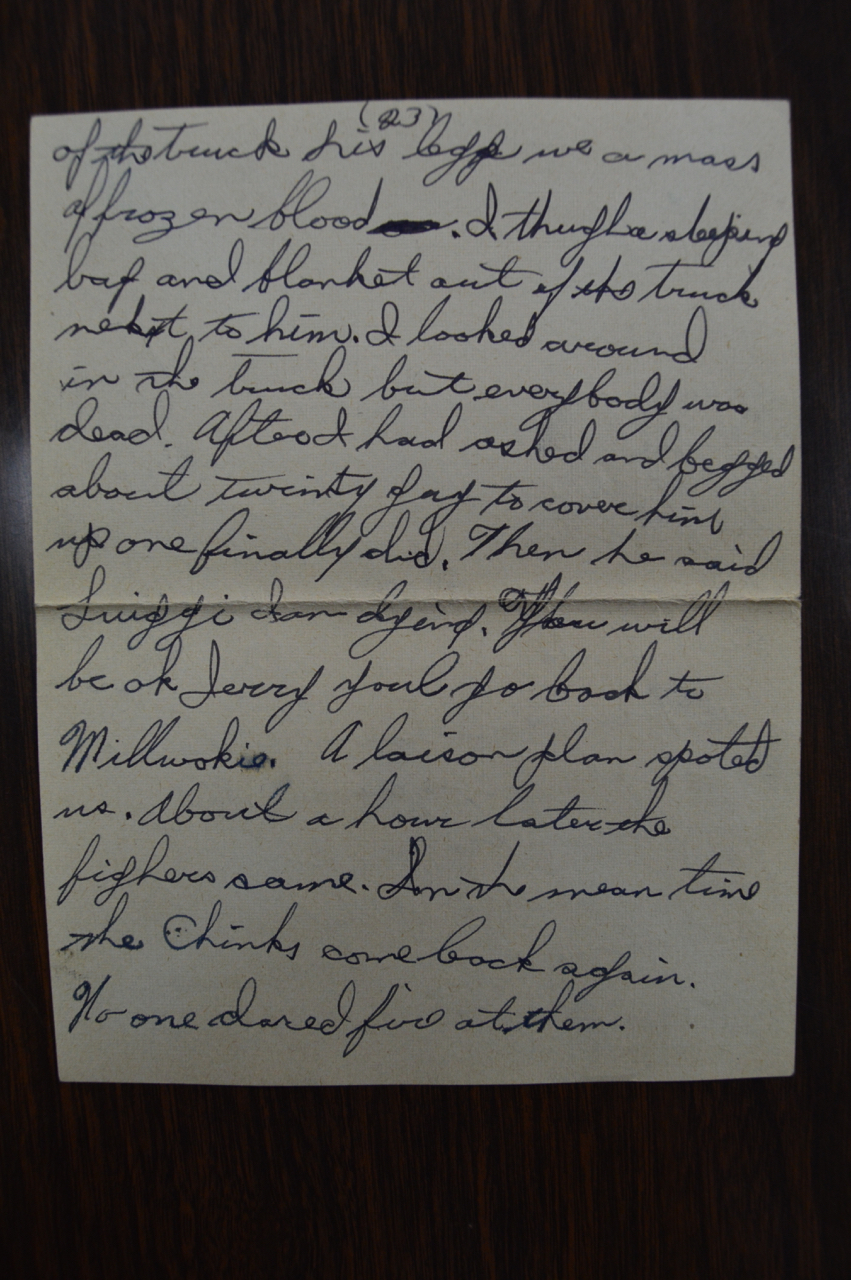 (23)
of the truck his legs we a mass
of frozen blood. I thugh a sleeping
bag and blanket out of the truck
next to him. I looked around
in the truck but everybody was
dead. After I had asked and begged
about twinty gay to cover him
up one finally did. Then he said
Luiggi I am dying. You will
be ok Jerry youl go back to
Millwokie. A laison plan spoted
us. About a hour later the
fighers came. In the mean time
the Chinks come back again.
No one dared fire at them.